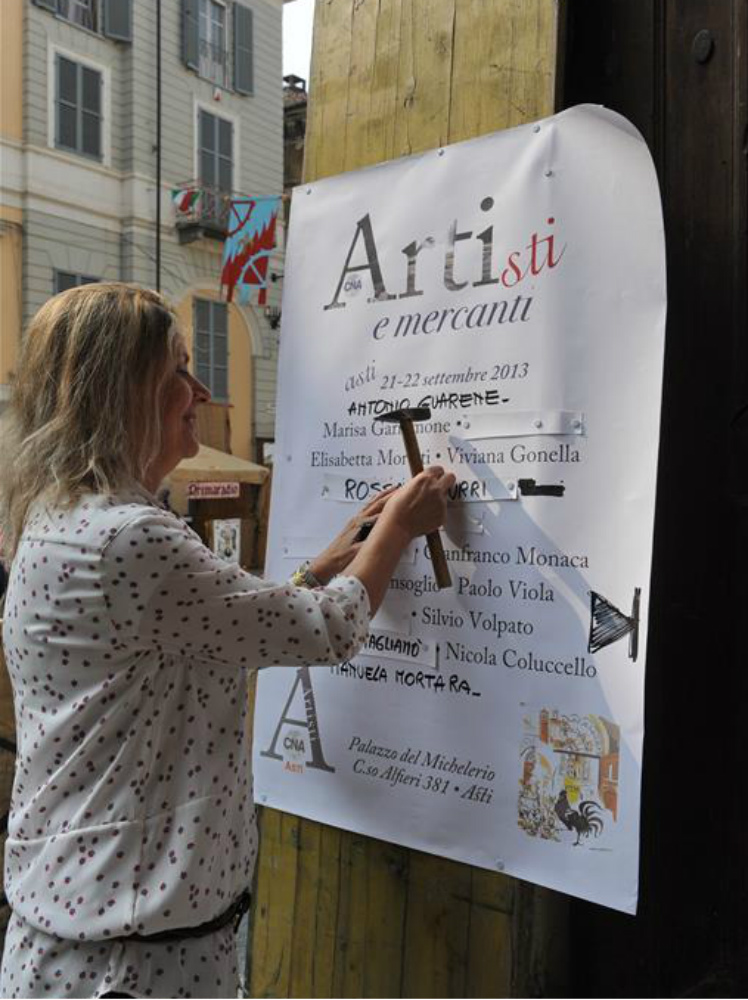 Artisti
CNA
e mercanti
asti 21-22 settembre 2013
ANTONIO GUARENE
Marisa •
Elisabetta • Viviana Gonella
Gianfranco Monaca
Paolo Viola
• Silvio Volpato
• Nicola Coluccello
MANUELA MORTARA
CNA
Asti
Palazzo del Michelerio
C.so Alfieri 381 • Asti